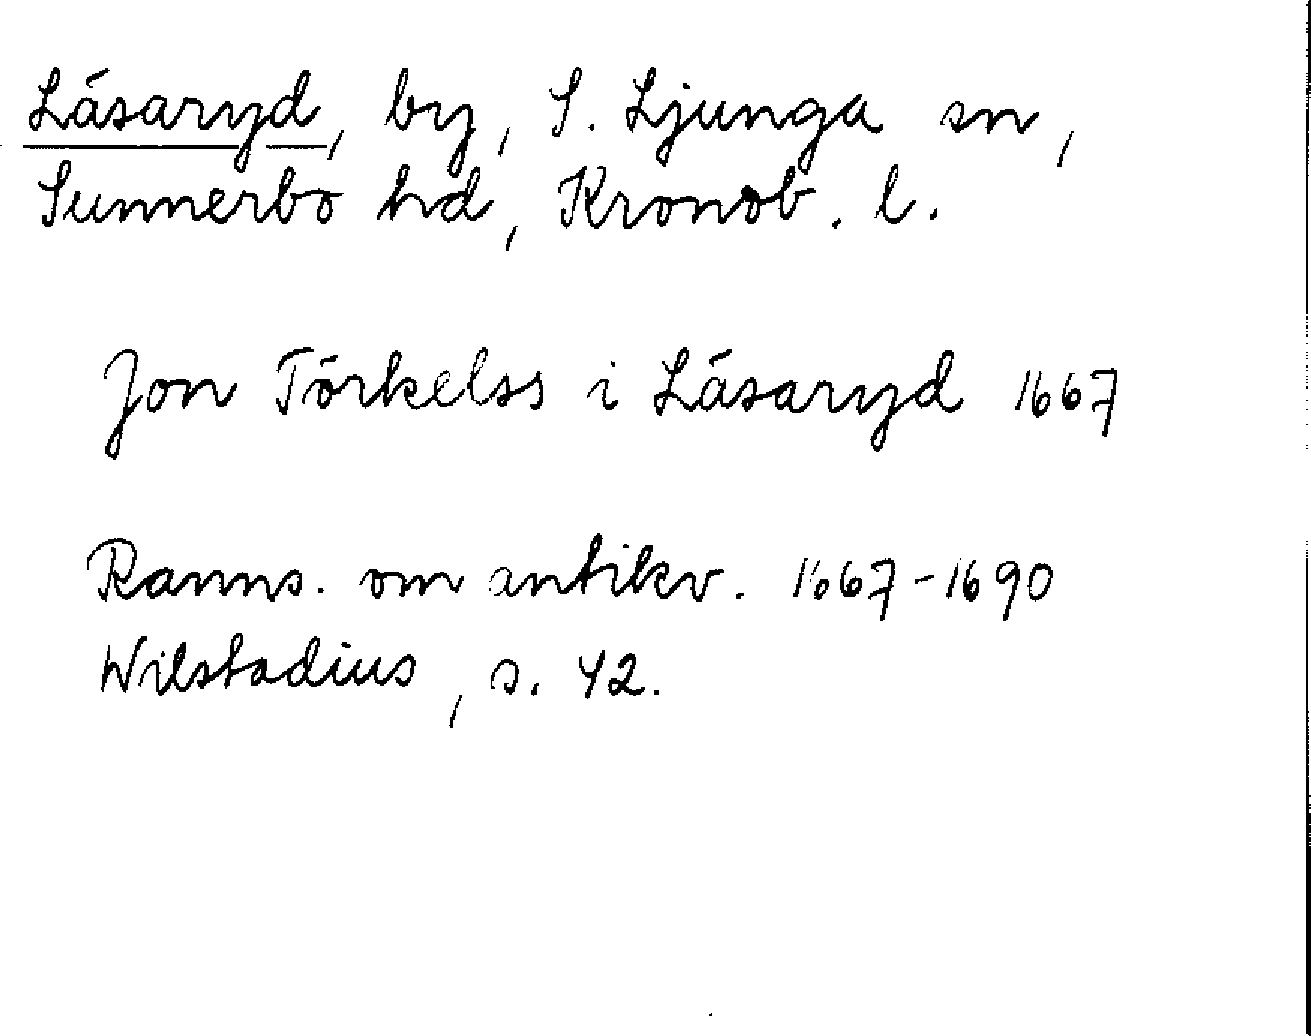 Läsaryd, by, S. Ljunga sn,
Sunnerbo hd, Kronob. l.
Jon Törkelss i Läsaryd 1667
Ranns. om antikv. 1667-1690
Wilstadius, s. 42.